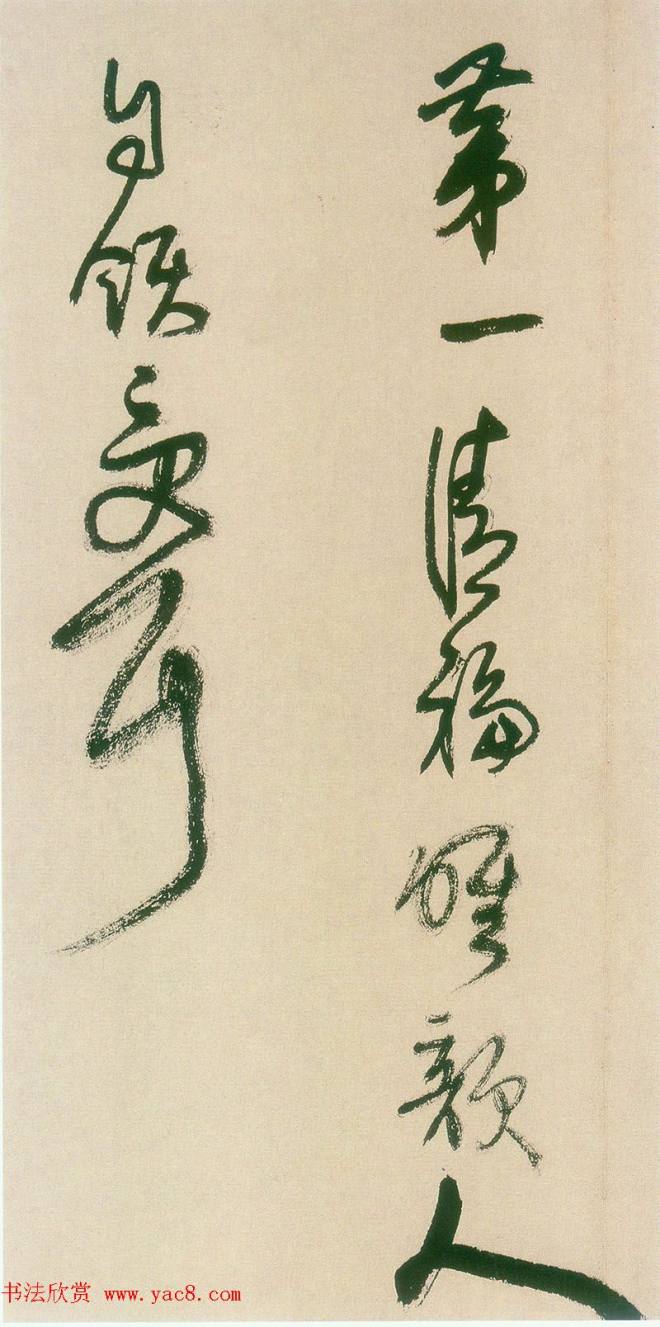 第一清福唯韻人
自領受耳
书法欣赏 www.yac8.com